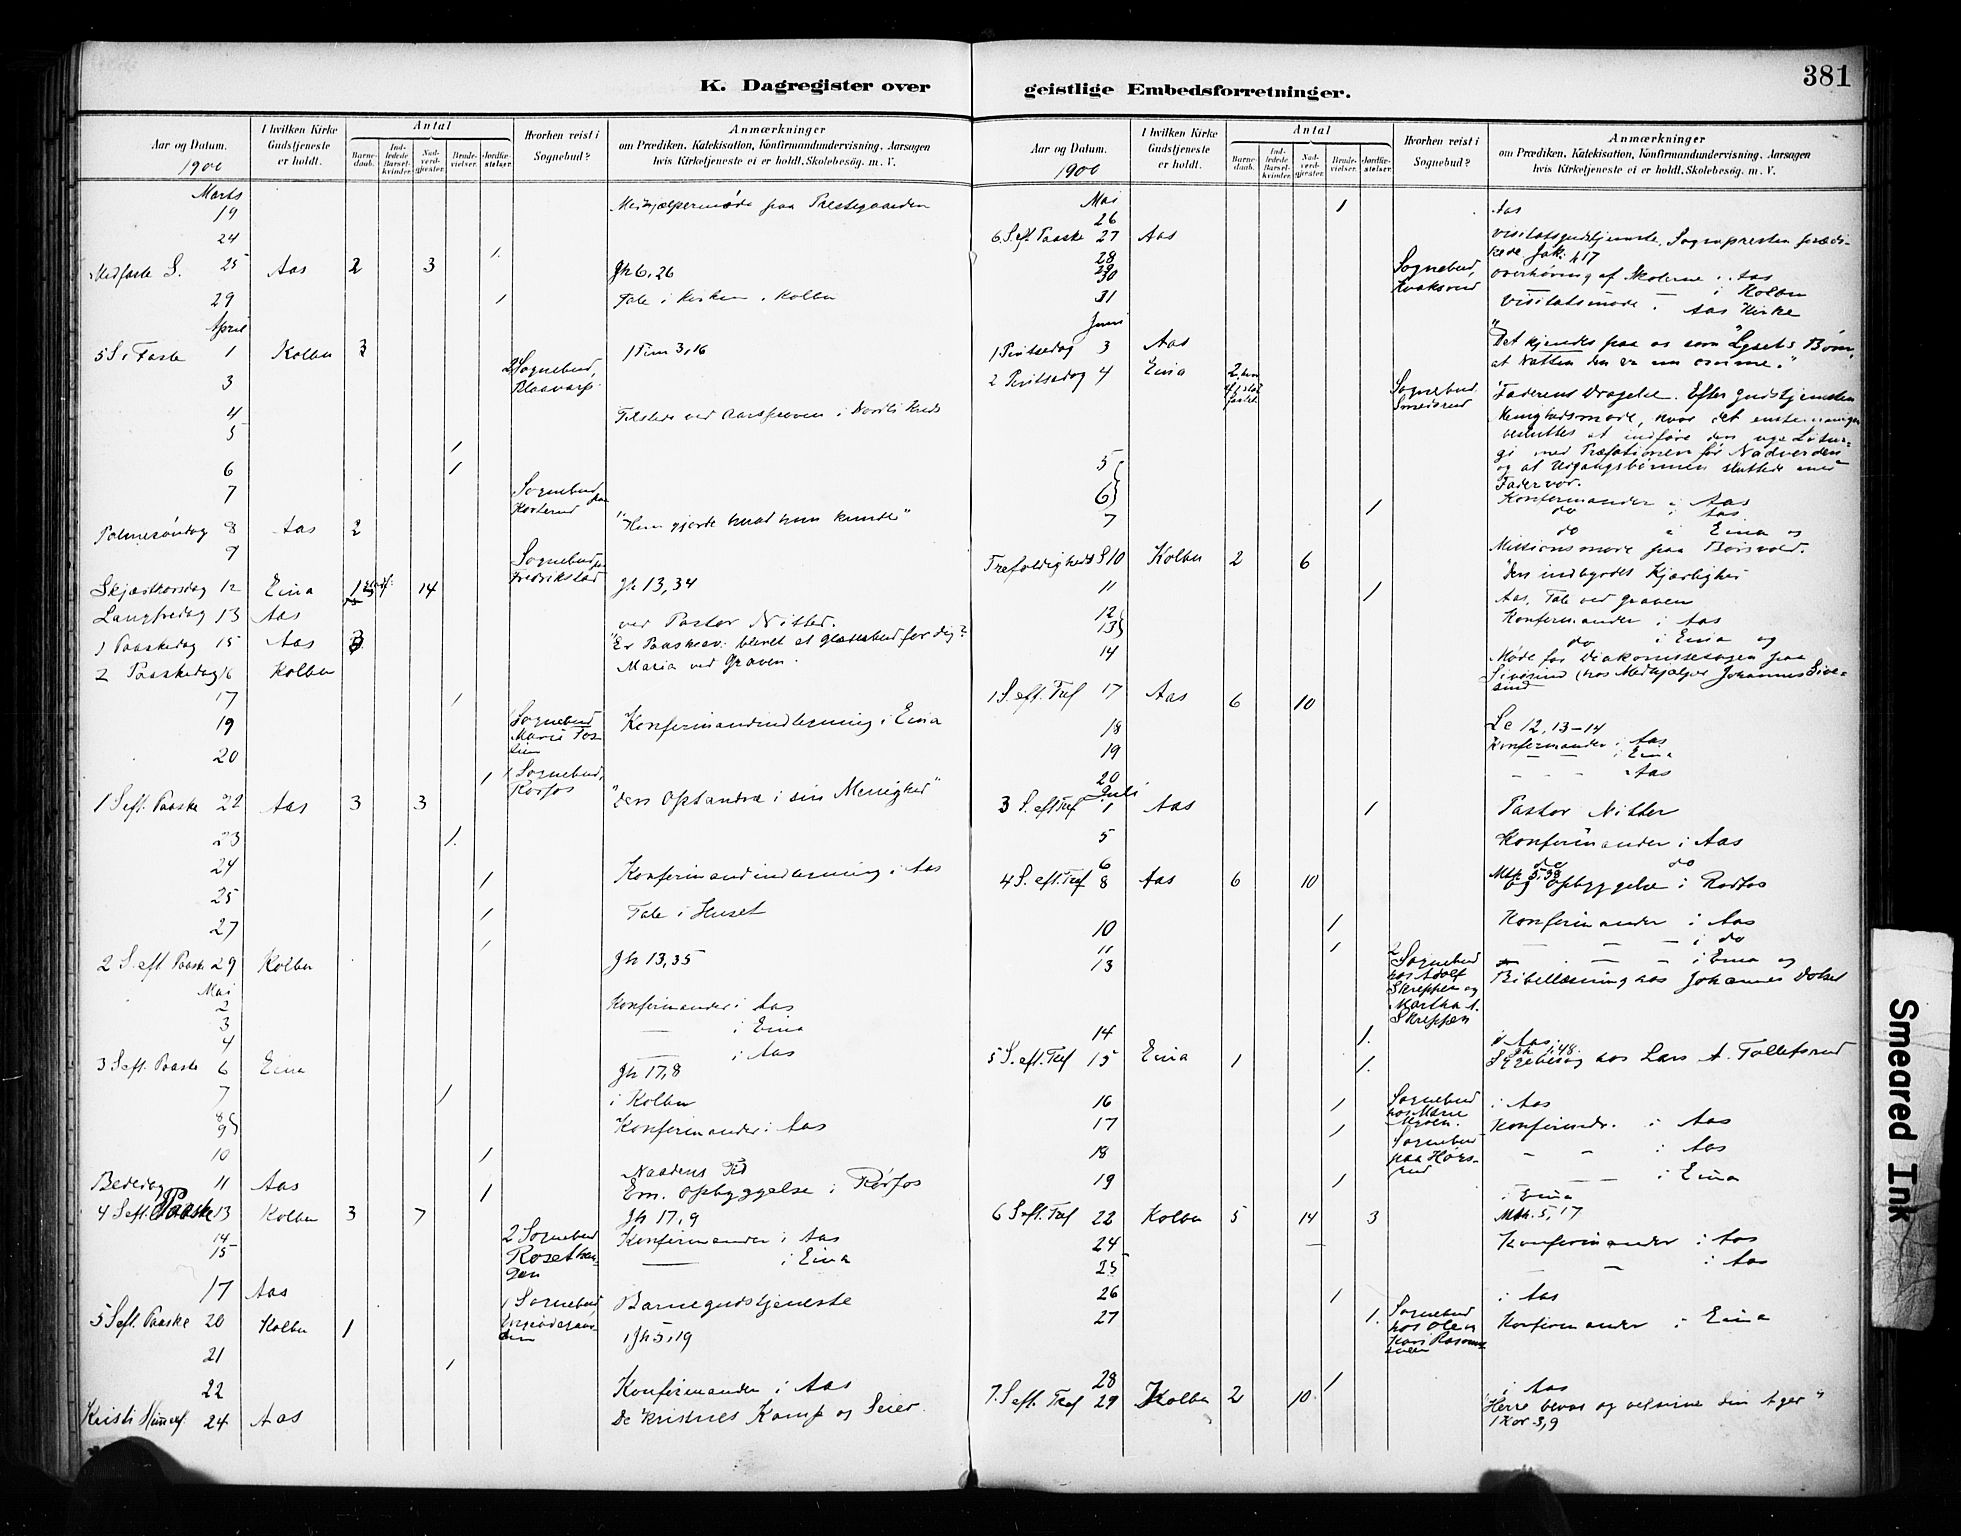 381
K. Dagregister over geistlige Embedsforretninger.
Aar og Datum.
1900
I hvilken Kirke Gudstjeneste er holdt.
Antal
Barnedaab.
Indledede Barselkvinder.
Nadverdgjester.
Brudevielser.
Jordfæstelser.
Hvorhen reist i Sognebud?
Anmærkninger
om Prædiken, Katekisation, Konfirmandundervisning, Aarsagen
hvis Kirketjeneste ei er holdt, Skolebesøg m. V.
Marts
19 Medhjælpermøde paa Prestegaarden
24 1.
Midfaste S. 25 Aas 2 3 Jh 6,26
29 1 Tale i Kirken. Kolbu
April
5 S. i Faste 1 Kolbu 3 1 Tim 3,16
3 2 Sognebud, Blaavarp.
4 Tilstede ved Aarsprøven i Kreds
5 1
6 1
7 Sognebud
Palmesøndag 8 Aas 2 "Hun gjorde hvad hun kunde"
9 Sognebud Fredrikstad
Skjærthorsdag 12 Eina 1 14 Jh 13,34
Langfredag 13 Aas ved Pastor Nitter.
1 Paaskedag 15 Aas 3 "Er Paaskeev. blevet et Glædesbud for dig?"
2 Paaskedag 16 Kolbu Maria ved Graven.
17 1
19 Sognebud Marie Konfirmandindlæsning i Eina
20 1 1 Sognebud, Rørfos
1 S. eft. Paaske 22 Aas 3 3 "Den Opstandne i sin Menighed"
23 1.
24 1 Konfirmandindlæsning i Aas
25 1 Tale i Huset
27 1
2 S. eft. Paaske 29 Kolbu Jh 13,35
Mai
2 Konfirmander i Aas
3 — i Eina
4 — i Aas
3 S. eft. Paaske 6 Eina Jh 17,8
7 1 i Kolbu
8
9 } Konfirmander i Aas
10 1
Bededag 11 Aas 1 Naadens Tid
Em. Opbyggelse i Rørfos
4 S. eft. Paaske 13 Kolbu 3 7 Jh 17,9
14 2 Sognebud Konfirmander i Aas
15 — i Eina
17 Aas Barnegudstjeneste
5 S. eft. Paaske 20 Kolbu 1 1 Sognebud, 1 Jh 5,19
21 1
22 Konfirmander i Aas
Kristi Himmelf. 24 Aas De Kristnes Kamp og Seier.
Aar og Datum.
1900
I hvilken Kirke Gudstjeneste er holdt.
Antal
Barnedaab.
Indledede Barselkvinder.
Nadverdgjester.
Brudevielser.
Jordfæstelser.
Hvorhen reist i Sognebud?
Anmærkninger
om Prædiken, Katekisation, Konfirmandundervisning, Aarsagen
hvis Kirketjeneste ei er holdt, Skolebesøg m. V.
Mai
26 1 Aas
6 S. eft. Paaske 27 Aas Visitatsgudstjeneste, Sognepresten prædikede Jak. 1,17
28 Sognebud, Kvaksrud Overhøring af Skolerne i Aas
29
30 — — i Kolbu
31 Visitatsmøde i Aas Kirke
Juni
1 Pintsedag 3 Aas "Det kjendes paa os som Lysets Børn,
at Natten den er nu omme."
2 Pintsedag 4 Eina 2 Sognebud Smedsrud Faderens Dragelse. Efter Gudstjenesten
Menighedsmøde, hvor det enstemmigen
besluttes at indføre den nye Liturgi
med Præfationen før Nadverden
og at Udgangsbønnen sluttede med
Fadervor.
5 } Konfirmander i Aas
6 } 1 do i Aas
7 do i Eina og
Missionsmøde paa Børsvold.
Trefoldigheds S 10 Kolbu 2 6 "Den indbyrdes Kjærlighed
11 1 Aas, Tale ved Graven
12 } Konfirmander i Aas
13 } do i Eina og
14 Møde for Diakonissesagen paa
Sivesind (hos Medhjælper Johannes Sivesind
1 S. eft. Tref 17 Aas 6 10 Lc 12,13-14
18 Konfirmander i Aas
19 — — i Eina
20 - - - Aas
Juli
3 S. eft Tref 1 Aas 1 Pastor Nitter
5 Konfirmander i Aas
6 do do
4 S. eft. Tref 8 Aas 6 10 Mth. 5,38 og Opbyggelse i Rødfos
10 1 Konfirmander i Aas
11 1 — — — i do
13 2 Sognebud hos Adolf Skreppen og Martha A. Skreppen — — i Eina og
Bibellæsning hos Johannes
14 1. i Aas.
5 S. eft. Tref 15 Eina 1 1. Jh 1,48. Sygebesøg hos Lars A. Tollefsrud
16 1 Sognebud hos Marie i Aas
17 1 Konfirmdr. i Aas
18 Sognebud paa Horsrud - - i Aas
19 1 — — i Eina
i Eina
6 S. eft. Tref 22 Kolbu 5 14 3 Mth. 5,17
24 — Konfirmander i Aas
25 — - i Aas
26 1 i Aas
27 1. Sognebud hos Ole Konfirmander i Eina
28 1 i Aas
7. S. eft. Tref 29 Kolbu 2 10 "Herre bevar og velsigne din Ager"
1 Kor 3,9
Smeared Ink